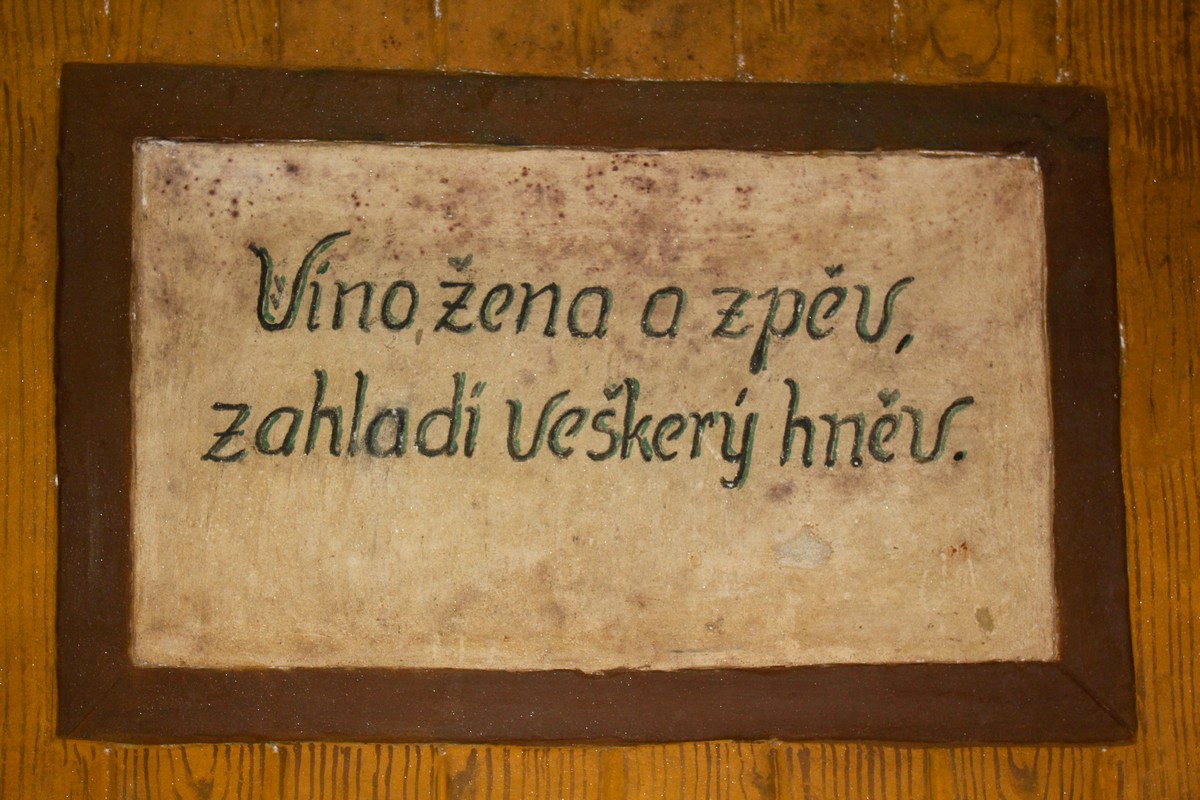 Víno, žena a zpěv,
zahladí veškerý hněv.